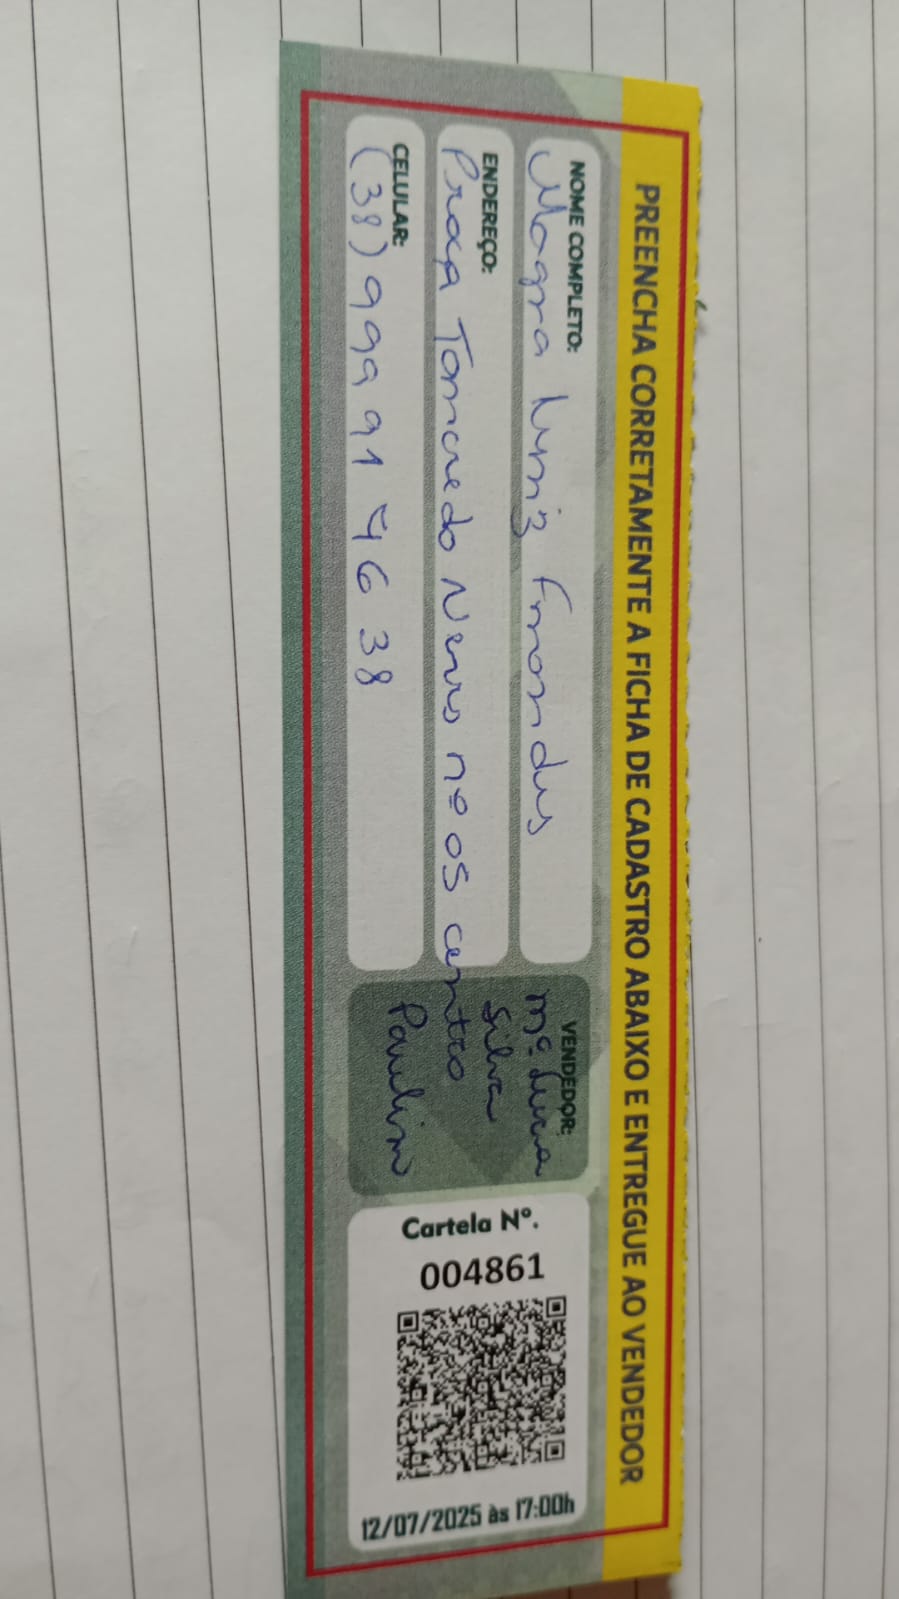 PREENCHA CORRETAMENTE A FICHA DE CADASTRO ABAIXO E ENTREGUE AO VENDEDOR
NOME COMPLETO:
ENDEREÇO:
Praça Tancredo Neves nº 05 centro
CELULAR:
(38) 999 91 46 38
VENDEDOR:
Mª Lucia
Silva
Paulino
Cartela Nº.
004861
12/07/2025 às 17:00h